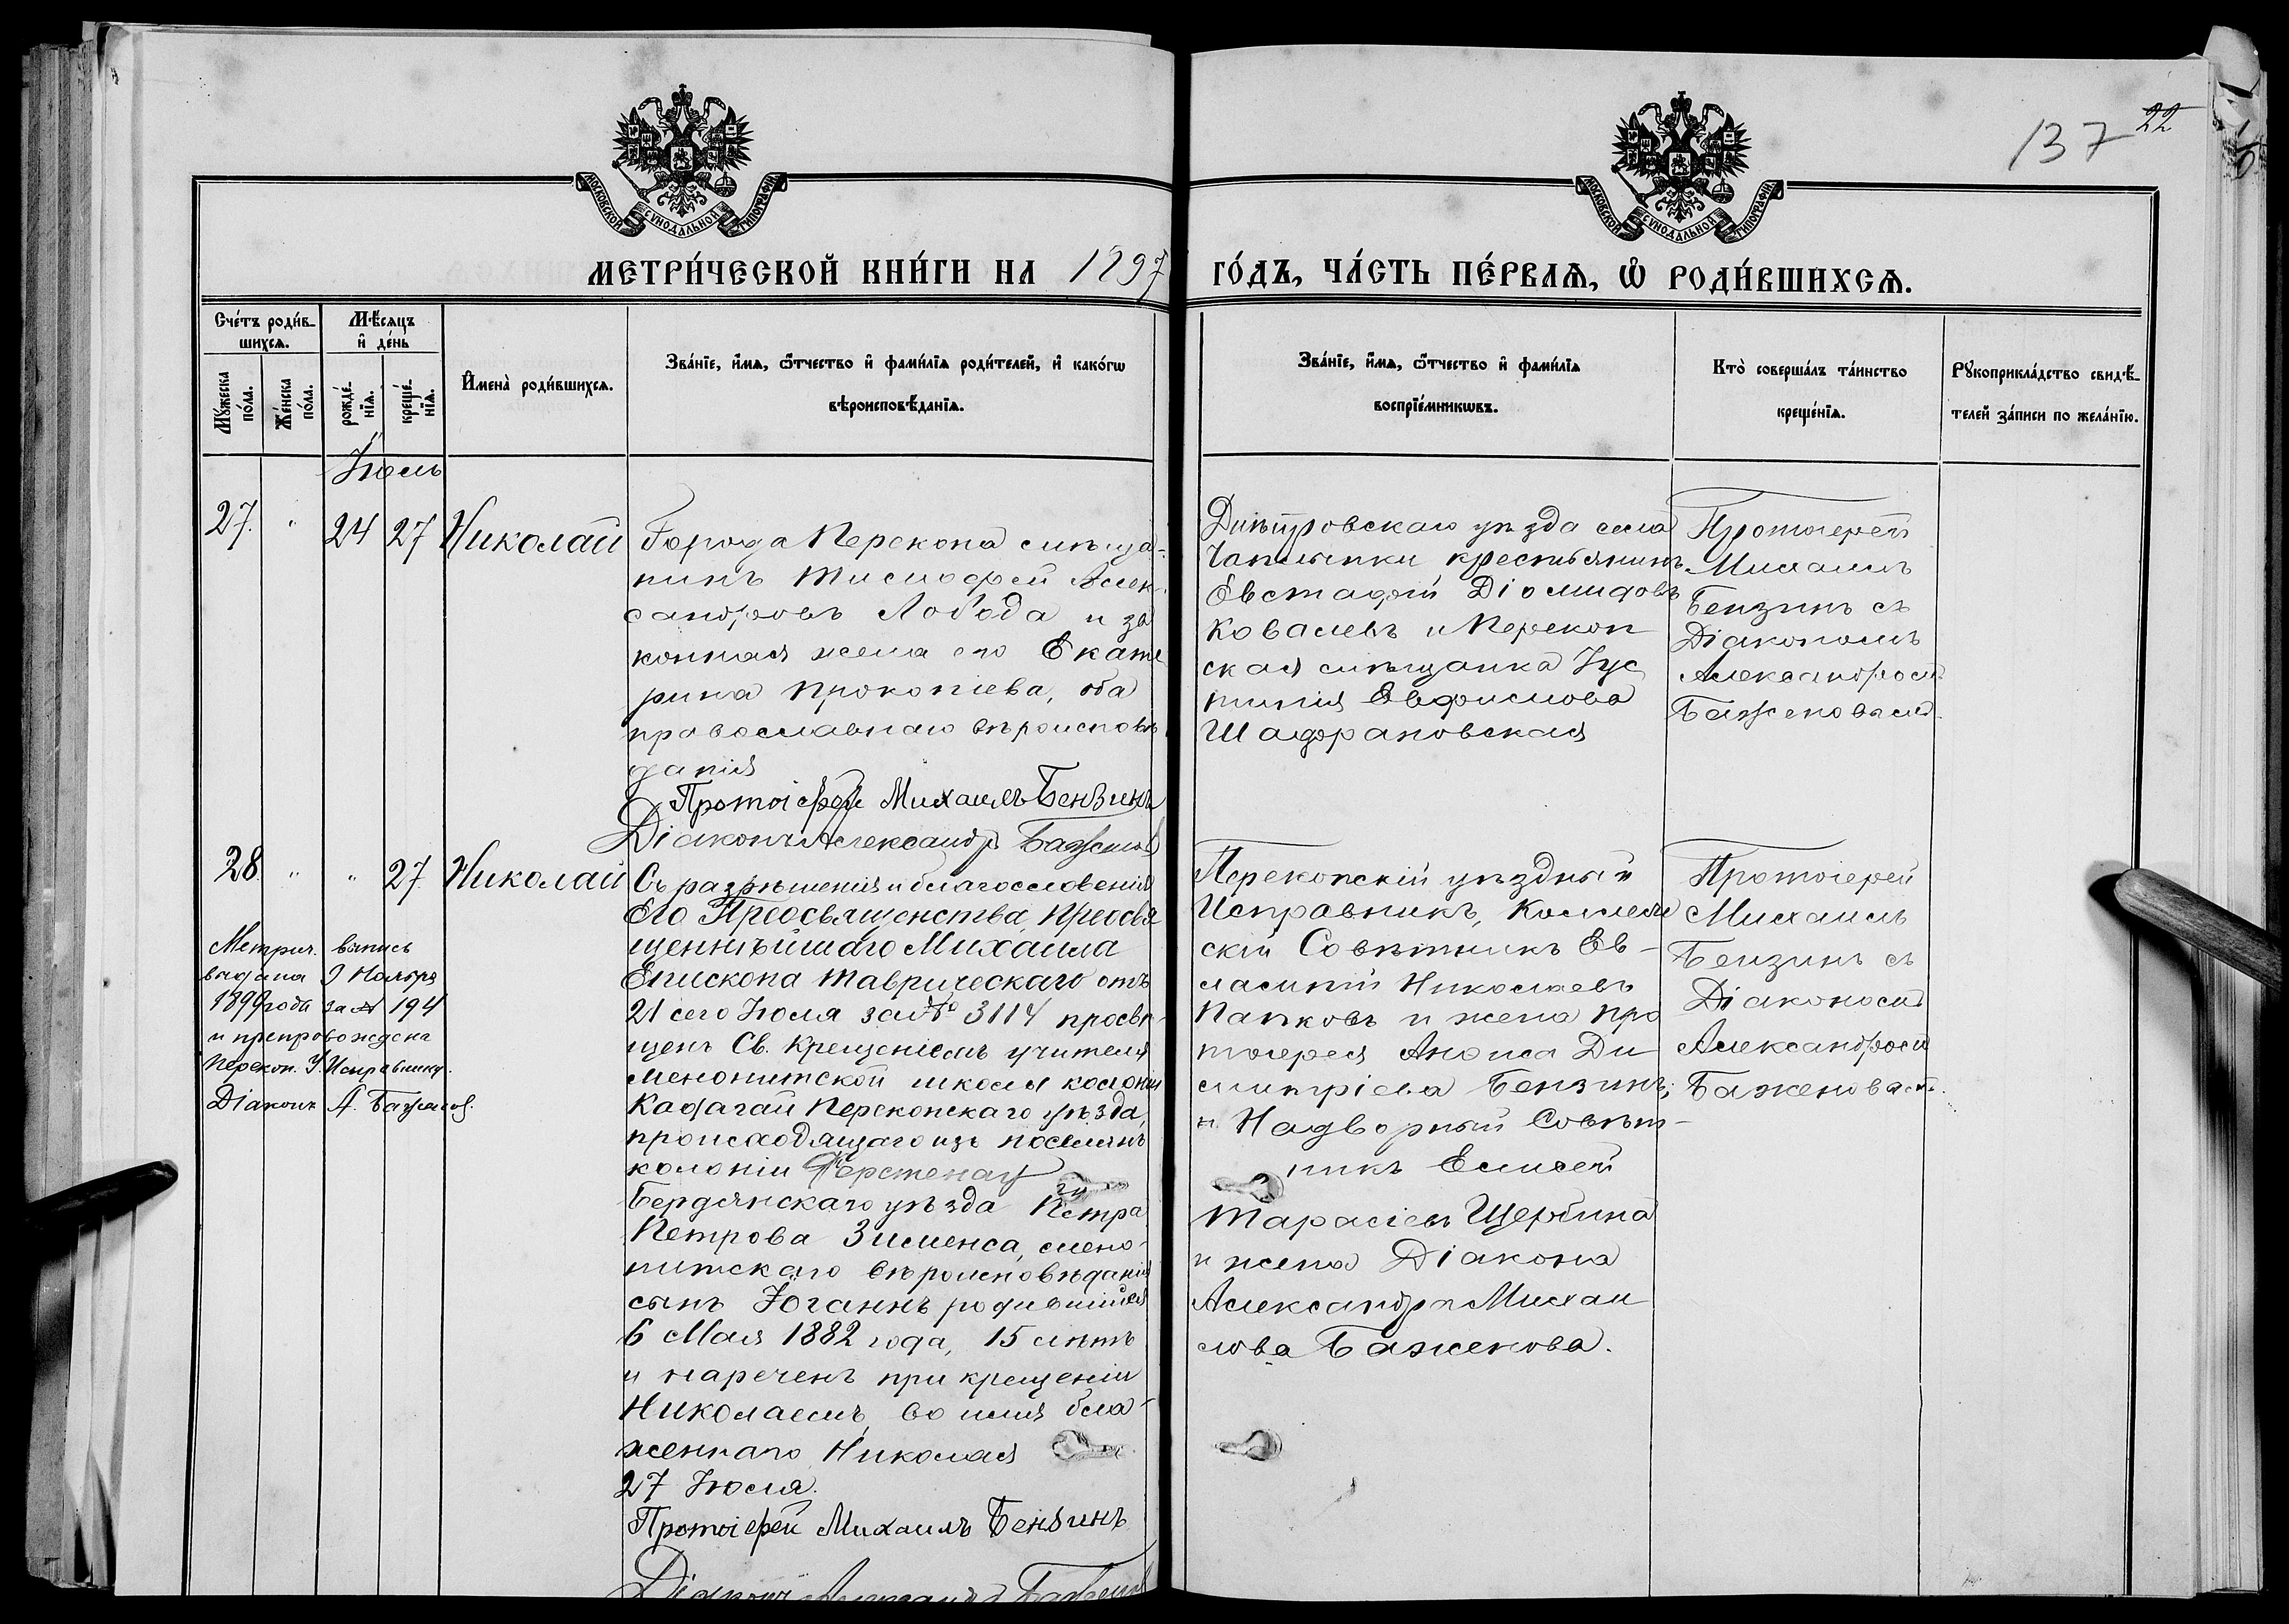 137 22
МОСКОВСКОЙ СѴНОДАЛЬНОЙ ТИПОГРАФІИ
МОСКОВСКОЙ СѴНОДАЛЬНОЙ ТИПОГРАФІИ
МЕТРИ́ЧЕСКОЙ КНИ́ГИ НА 1897 ГО́ДЪ, ЧА́СТЬ ПЕ́РВАѦ, Ѡ҆ РОДИ́ВШИХСѦ.
Сче́тъ роди́в-
шихсѧ.
Мѣ́сѧцъ
и҆ де́нь
Мꙋ́жеска
по́ла.
Же́нска
по́ла.
рожде́-
нїѧ.
креще́-
нїѧ.
И҆мена̀ роди́вшихсѧ.
Зва́нїе, и҆́мѧ, ѻ҆́тчество и҆ фами́лїѧ роди́телей, и҆ како́гѡ
вѣроисповѣ́данїѧ.
Зва́нїе, и҆́мѧ, ѻ҆́тчество и҆ фами́лїѧ
воспрїе́мникѡвъ.
Кто̀ соверша́лъ та́инство
креще́нїѧ.
Рꙋкоприкла́дство свидѣ́-
телей за́писи по жела́нїю.
Іюль
27. " 24 27 Николай
Города Перекопа мѣща-
нинъ Тимофей Алек-
сандровъ Лобода и за
конная жена его Екате
рина Прокопіева, оба
православнаго вѣроисповѣ
данія
Протоіерей Михаилъ Бензинъ
Діаконъ Александръ Баженовъ
Днѣпровскаго уѣзда села
Чаплынки крестьянинъ
Евстафій Діомидовъ
Ковалевъ и Перекоп
ская мѣщанка Іус
тинія Евфимова
Шафрановская
Протоіерей
Михаилъ
Бензинъ съ
Діакономъ
Александромъ
Баженовымъ.
28. " " 27. Николай
Метрич. выпись
выдана 9 Ноября
1899 года за № 194
и препровождена
Перекоп. У. Исправнику.
Діаконъ А. Баженов.
Съ разрѣшенія и благословенія
Его Преосвященства, Преосвя
щеннѣйшаго Михаила
Епископа Таврическаго отъ
21 сего Іюля за № 3114 просвѣ-
щенъ Св. Крещеніемъ учителя
менонитской школы колоніи
Кадагай Перекопскаго уѣзда,
происходящаго изъ поселянъ
колоніи Ферстенау
Бердянскаго уѣзда Петра
Петрова Зименса, мено-
нитскаго вѣроисповѣданія
сынъ Іоганнъ родившійся
6 Мая 1882 года, 15 лѣтъ
и нареченъ при крещеніи
Николаемъ, во имя бла-
женнаго Николая
27 Іюля.
Протоіерей Михаилъ Бензинъ
Діаконъ Александръ Баженовъ
Перекопскій уѣздный
Исправникъ, Коллеж
скій Совѣтникъ Ев-
лампій Николаевъ
Папковъ и жена Про
тоіерея Анфиса Ди
митріева Бензинъ;
и Надворный Совѣт-
никъ Елисей
Тарасіевъ Щербина
и жена Діакона
Александра Михаи
лова Баженова.
Протоіерей
Михаилъ
Бензинъ съ
Діакономъ
Александромъ
Баженовымъ.